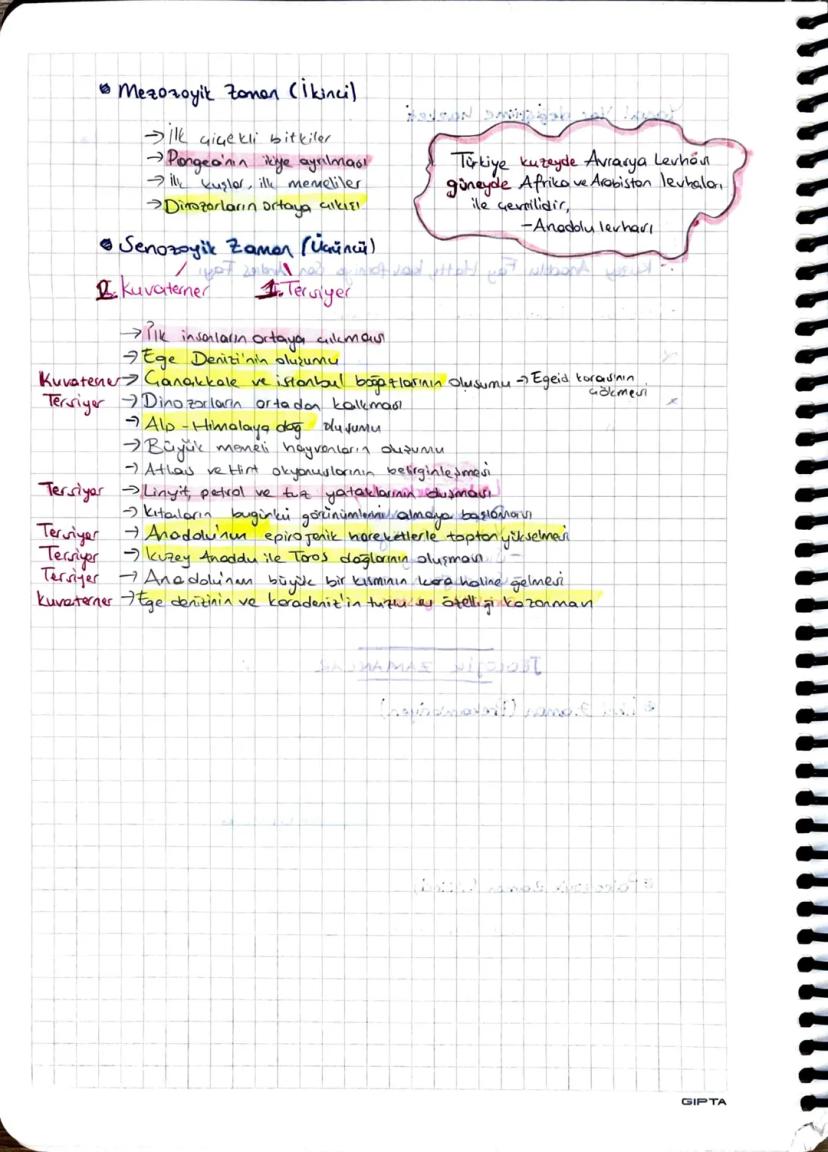 Mezozoyik Zaman (İkinci)
→ İlk çiçekli bitkiler
→ Pangea'nın ikiye ayrılması
→ ilk kuşlar, ilk memeliler
→ Dinozorların ortaya çıkışı
Türkiye kuzeyde Avrasya Levhası
güneyde Afrika ve Arabistan levhaları
ile çevrilidir,
-Anadolu levhası
Senozoyik Zaman (Üçüncü)
2. Kuvaterner 1. Tersiyer
→ İlk insanların ortaya çıkması
→ Ege Denizi'nin oluşumu
Kuvaterner → Çanakkale ve istanbul boğazlarının oluşumu → Egeid karasının
çökmesi
Tersiyer → Dinozorların ortadan kalkması
→ Alp-Himalaya dağ oluşumu
→ Büyük memeli hayvanların oluşumu
→ Atlas ve Hint okyanuslarının belirginleşmesi
Tersiyer → Linyit, petrol ve tuz yataklarının oluşması
→ Kıtaların bugünkü görünümlerini almaya başlaması
Tersiyer → Anadolu'nun epirojenik hareketlerle toptan yükselmesi
Tersiyer → Kuzey Anadolu ile Toros dağlarının oluşması
Tersiyer → Anadolu'nun büyük bir kısmının kara haline gelmesi
Kuvaterner → Ege denizinin ve karadeniz'in tuzlu su özelliği kazanması
GIPTA